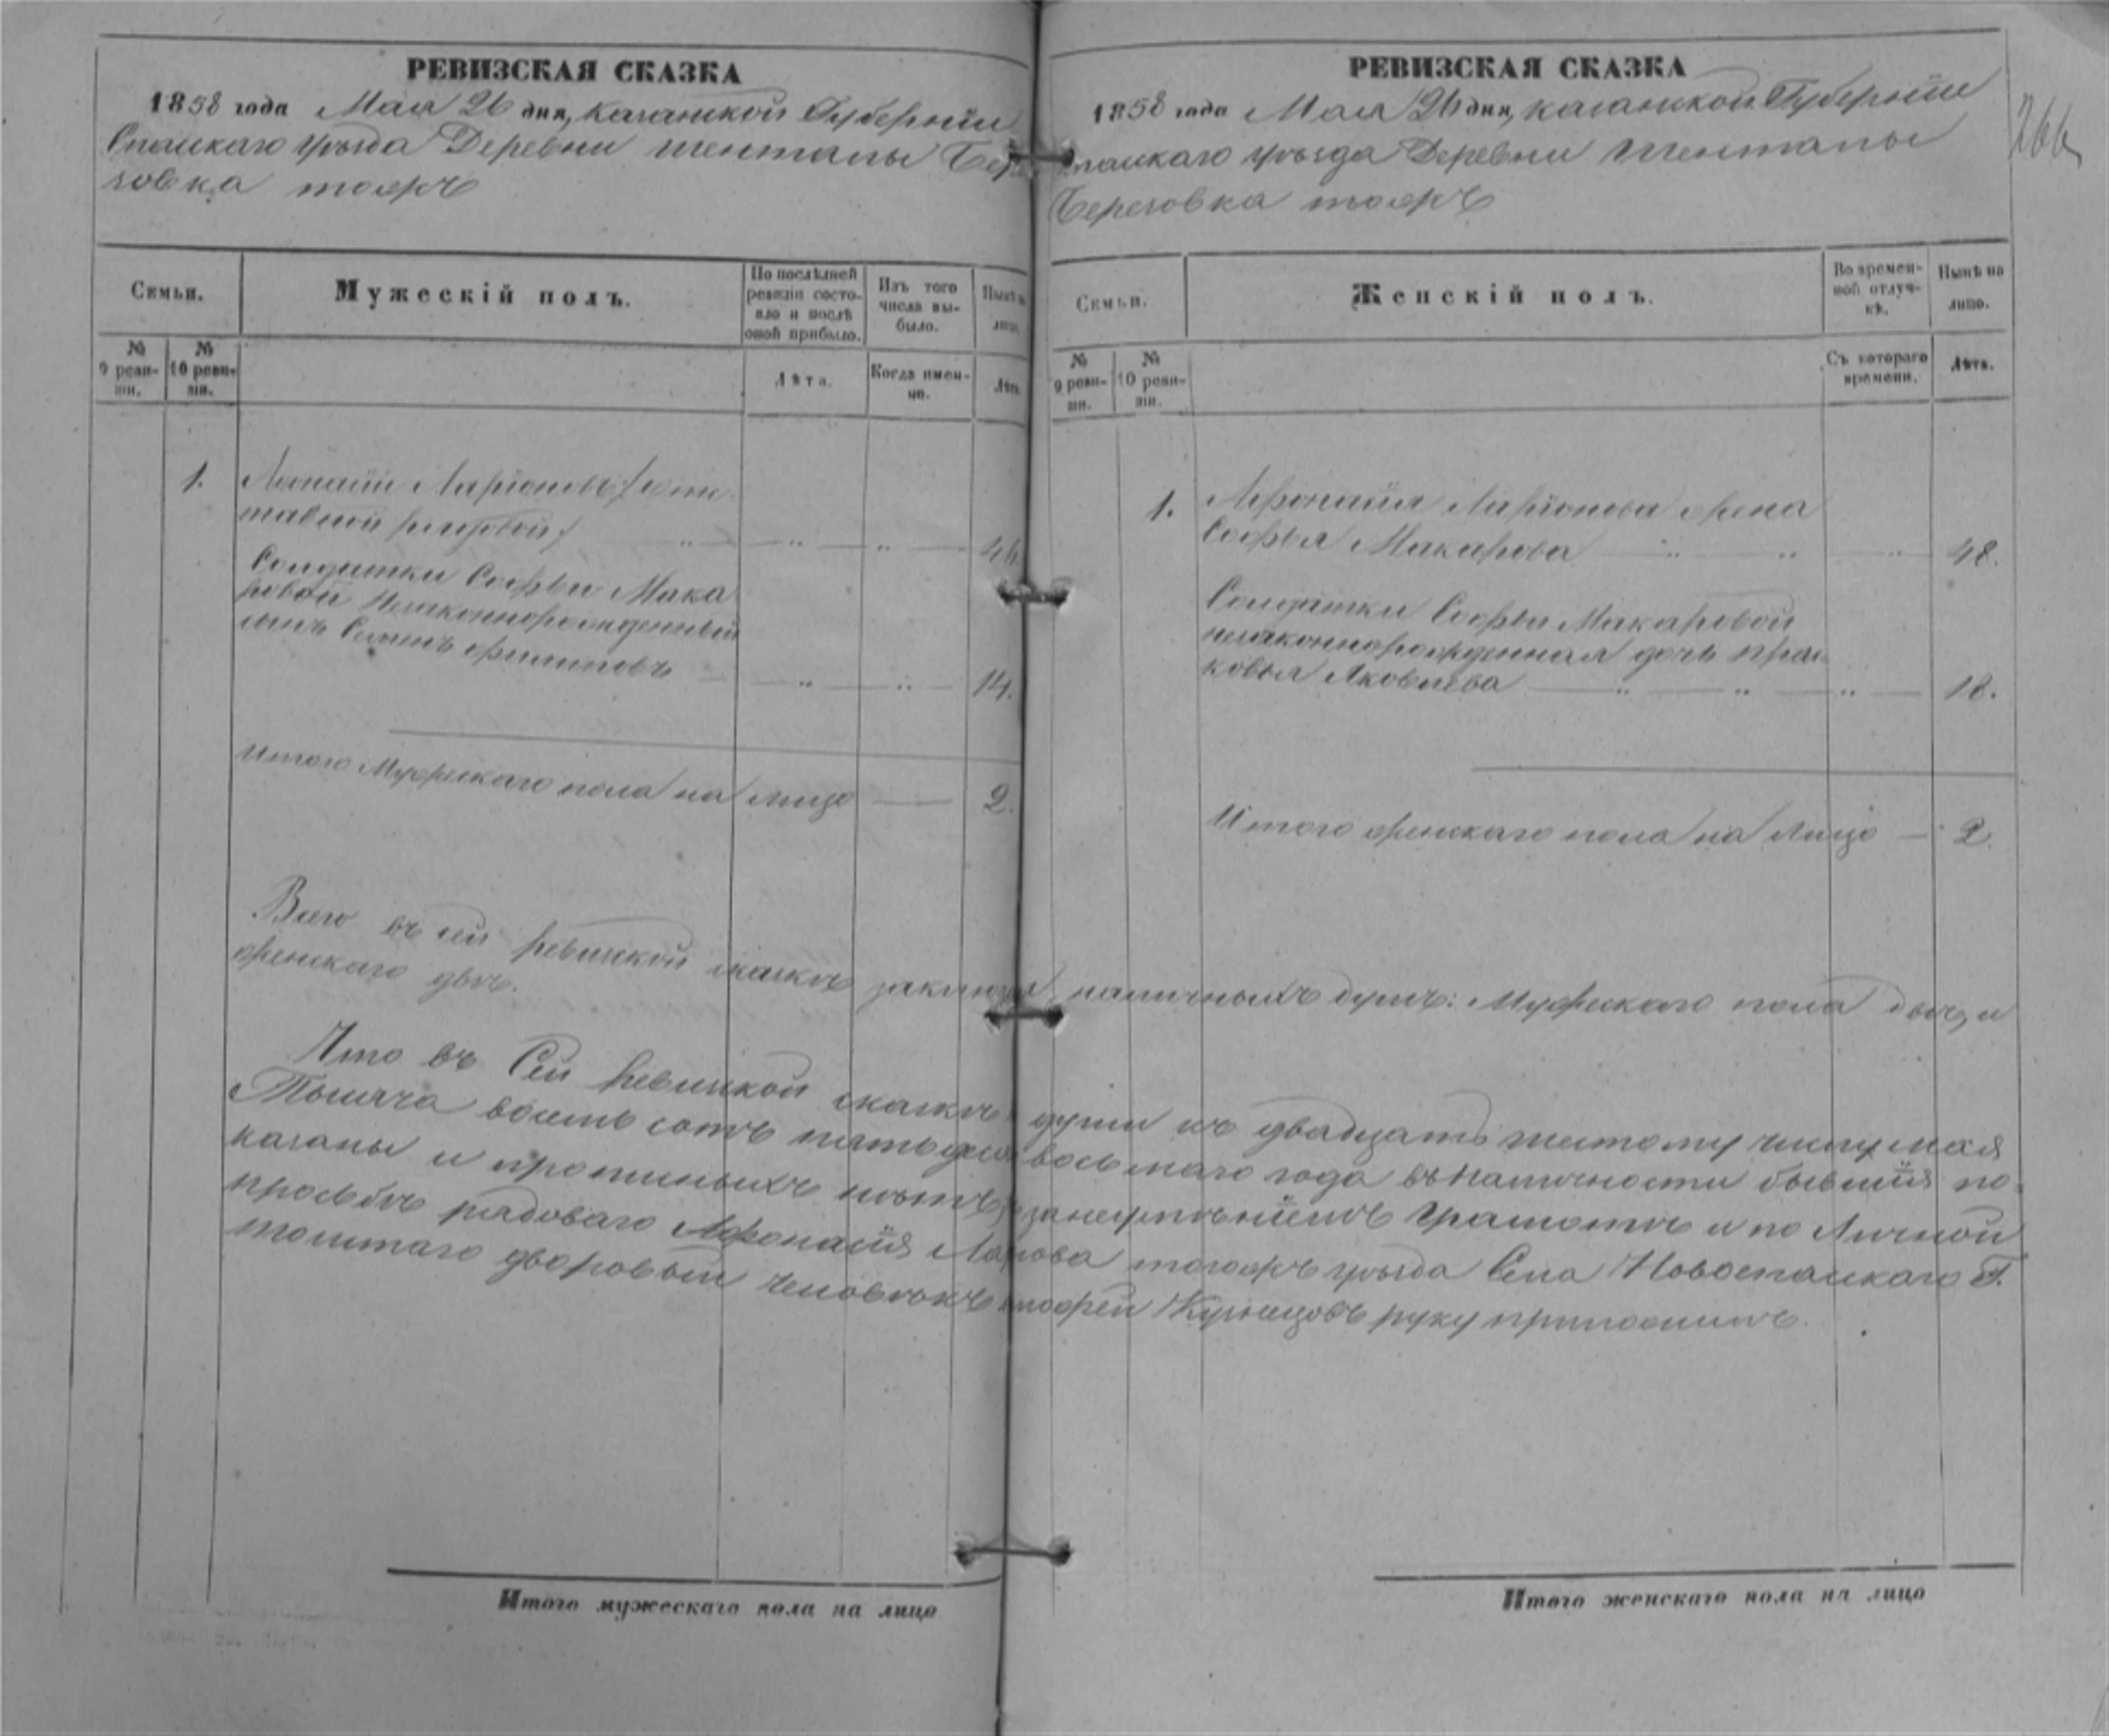 РЕВИЗСКАЯ СКАЗКА
1858 года Мая 26 дня, Казанской Губерніи
Спаскаго уѣзда Деревни Шенталы Бере
зовка тожъ
Семьи.
Мужескій полъ.
По послѣдней ревизіи состояло и послѣ оной прибыло.
Изъ того числа выбыло.
Нынѣ на лицо.
№ 9 ревизіи.
№ 10 ревизіи.
Лѣта.
Когда именно.
Лѣта.
1.
Ларіоновъ
46
Солдатки Софьи Мака
ровой незаконнорожденный
сынъ Семенъ Филиповъ
14.
Итого Мужескаго пола на лицо 2.
РЕВИЗСКАЯ СКАЗКА
1858 года Мая 26 дня, Казанской Губерніи
Спаскаго уѣзда Деревни Шенталы
Березовка тожъ
266
Семьи.
Женскій полъ.
Во временной отлучкѣ.
Нынѣ на лицо.
№ 9 ревизіи.
№ 10 ревизіи.
Съ котораго времени.
Лѣта.
1.
Афонасія Ларіонова жена
Софья Макарова 48.
Солдатки Софьи Макаровой
незаконнорожденная дочь Прас
ковья Яковлева 18.
Итого женскаго пола на лицо 2.
Всего въ сей ревизской сказкѣ наличныхъ душъ: Мужескаго пола двѣ, и
женскаго двѣ.
Что въ Сей Ревизской сказкѣ души къ двадцать шестому числу мая
Тысяча восемь сотъ пятьдесят восьмаго года въ наличности бывшія по
казаны и прописныхъ нѣтъ, за неумѣніемъ грамотѣ и по Личной
прозьбѣ рядоваго Афонасія тогожъ уѣзда Села Новоспаскаго Г.
Толстаго дворовый человѣкъ Кузнецовъ руку приложилъ.
Итого мужескаго пола на лицо
Итого женскаго пола на лицо